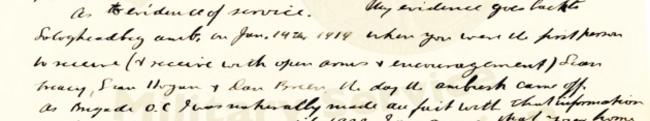 As to evidence of service. My evidence goes back to
Sologheadbeg amb. in Jan. 1919 when you were the first person
to receive (& receive with open arms & encouragement) Sean
Treacy, Sean Hogan & Dan Breen the day the ambush came off.
As Brigade O.C I was naturally made au fait with that information
that your home